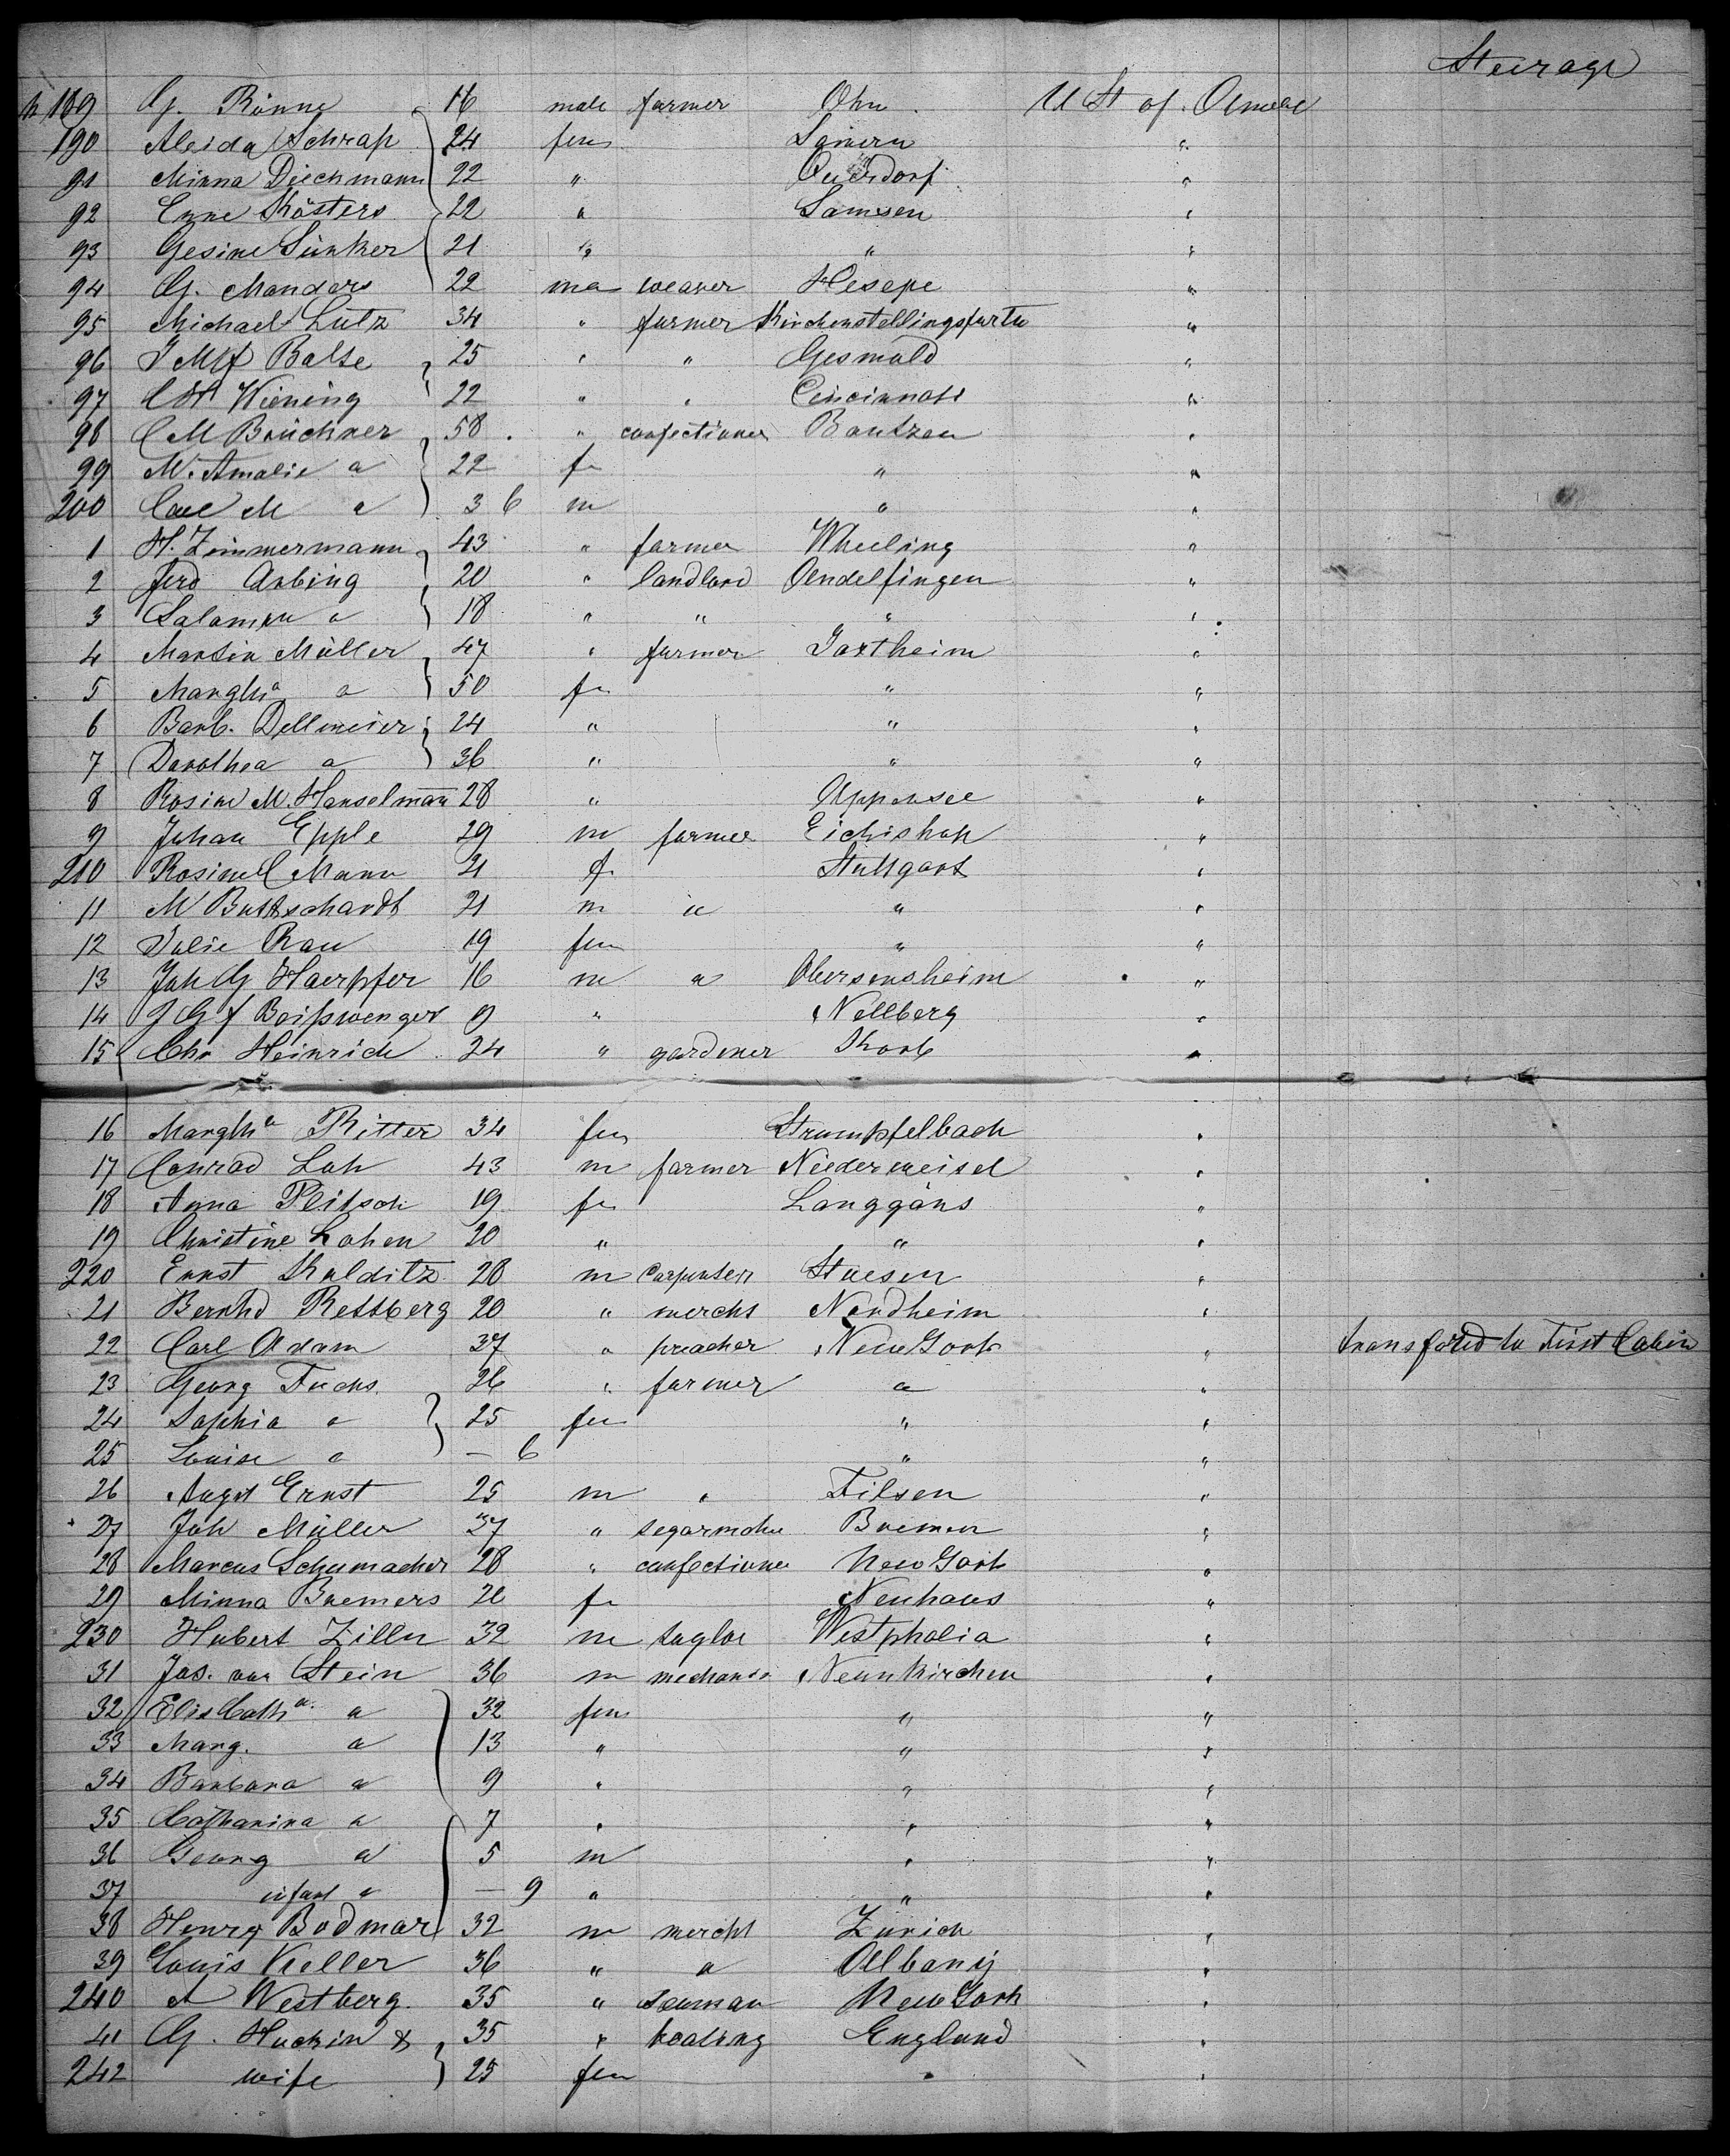 Steerage
189 G. Rönne 16 male farmer Ohn U St of. Ameri
190 Aleida Schrap 24 fem
91 Minna Dieckmann 22 " Quendorf "
92 Enne Kösters 22 " Samsen "
93 Gesine Sünker 21 " " "
94 G. Mandars 22 ma weaver Hesepe "
95 Michael Lutz 34 " farmer Kirchenstellingsfurth "
96 Balse 25 " " Gesmold "
97 C H Wiening 22 " " Cincinnati "
98 C M Brückner 58 " confectioner Bautzen "
99 M. Amalie " 22 f " "
200 Carl M " 3 6 m " "
1 H. Zimmermann 43 " farmer Wheeling "
2 Ferd Arbing 20 " landlord Andelfingen "
3 " 18 " " " "
4 Martin Müller 47 " farmer Jaxtheim "
5 Margtha " 50 fe " "
6 Barb. Dellmeier 24 " " "
7 Dorothea " 36 " " "
8 Rosine M. Hanselmann 28 " "
9 Johan Epple 29 m farmer "
210 Rosine C Mann 21 f Stuttgart "
11 M Buttschardt 21 m " " "
12 Julie Rau 19 fem " "
13 Joh G Haerpfer 16 m " Obersonsheim "
14 J G f Baißwenger 9 " Nellberg "
15 Chr Heinrich 24 " gardener Korb "
16 Margtha Ritter 34 fem Strumpfelbach "
17 Conrad Loh 43 m farmer Niederweisel "
18 Anna Pleitsch 19 fe Langgöns "
19 Christine Lohen 20 " " "
220 Ernst Kolditz 28 m carpenter "
21 Bernhd Rettberg 20 " mercht Nordheim "
22 Carl Adam 37 " preacher New York " transfered to First Cabin
23 Georg Fuchs 26 " farmer " "
24 Sophia " 25 fem " "
25 Louise " — 6 " "
26 Augst Ernst 25 m " Filsen "
27 Joh Müller 37 " segarmaker Bremen "
28 Marcus Schumacher 28 " confectioner New York "
29 Minna Bremers 20 fe Neuhaus "
230 Hubert Ziller 32 m taylor Westphalia "
31 Jos. van Stein 36 m mechanic Neunkirchen "
32 Elis Catha " 32 fem " "
33 Marg. " 13 " " "
34 Barbara " 9 " " "
35 Catharina " 7 " " "
36 Georg " 5 m " "
37 infant " — 9 " " "
38 Henry Bodmar 32 m mercht Zürich "
39 Louis Keller 36 " " Albany "
240 A Westberg 35 " seaman New York "
41 G. Huckin & 35 " England "
242 wife 25 fem " "